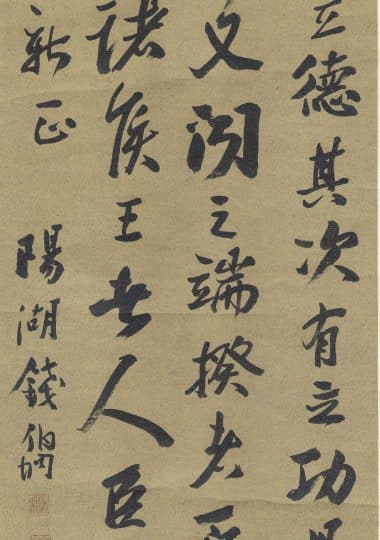 立德其次有立功
又聞之端揆者百
諸侯王者人臣
新正
陽湖錢伯坰